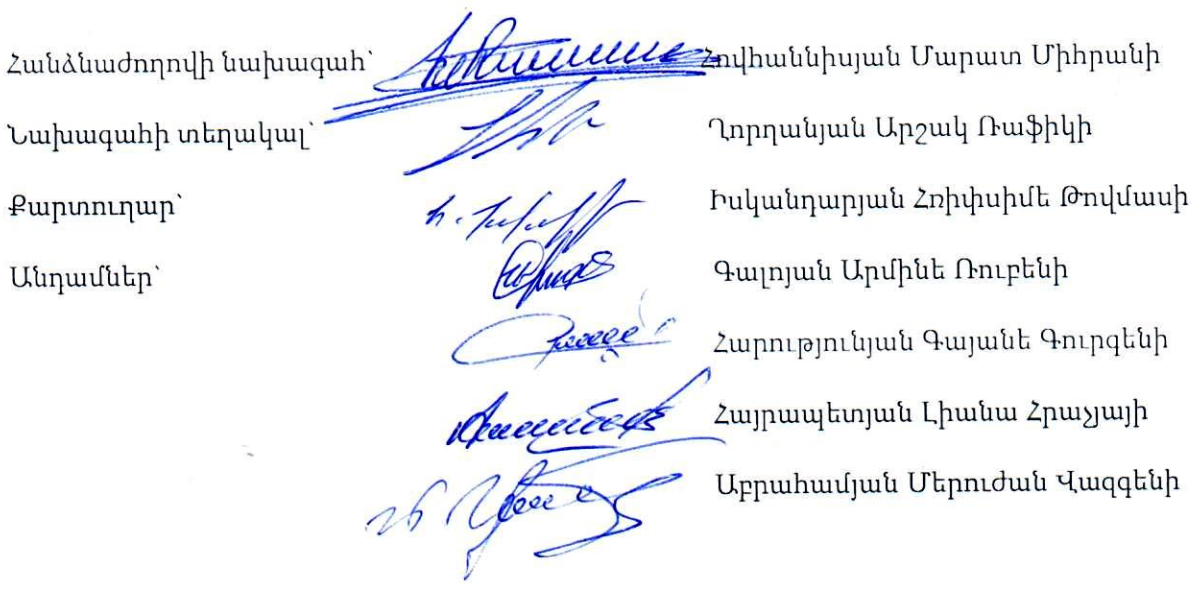 Հանձնաժողովի նախագահ՝ Հովհաննիսյան Մարատ Միհրանի
Նախագահի տեղակալ՝ Ղորղանյան Արշակ Ռաֆիկի
Քարտուղար՝ Իսկանդարյան Հռիփսիմե Թովմասի
Անդամներ՝ Գալոյան Արմինե Ռուբենի
Հարությունյան Գայանե Գուրգենի
Հայրապետյան Լիանա Հրաչյայի
Աբրահամյան Մերուժան Վազգենի